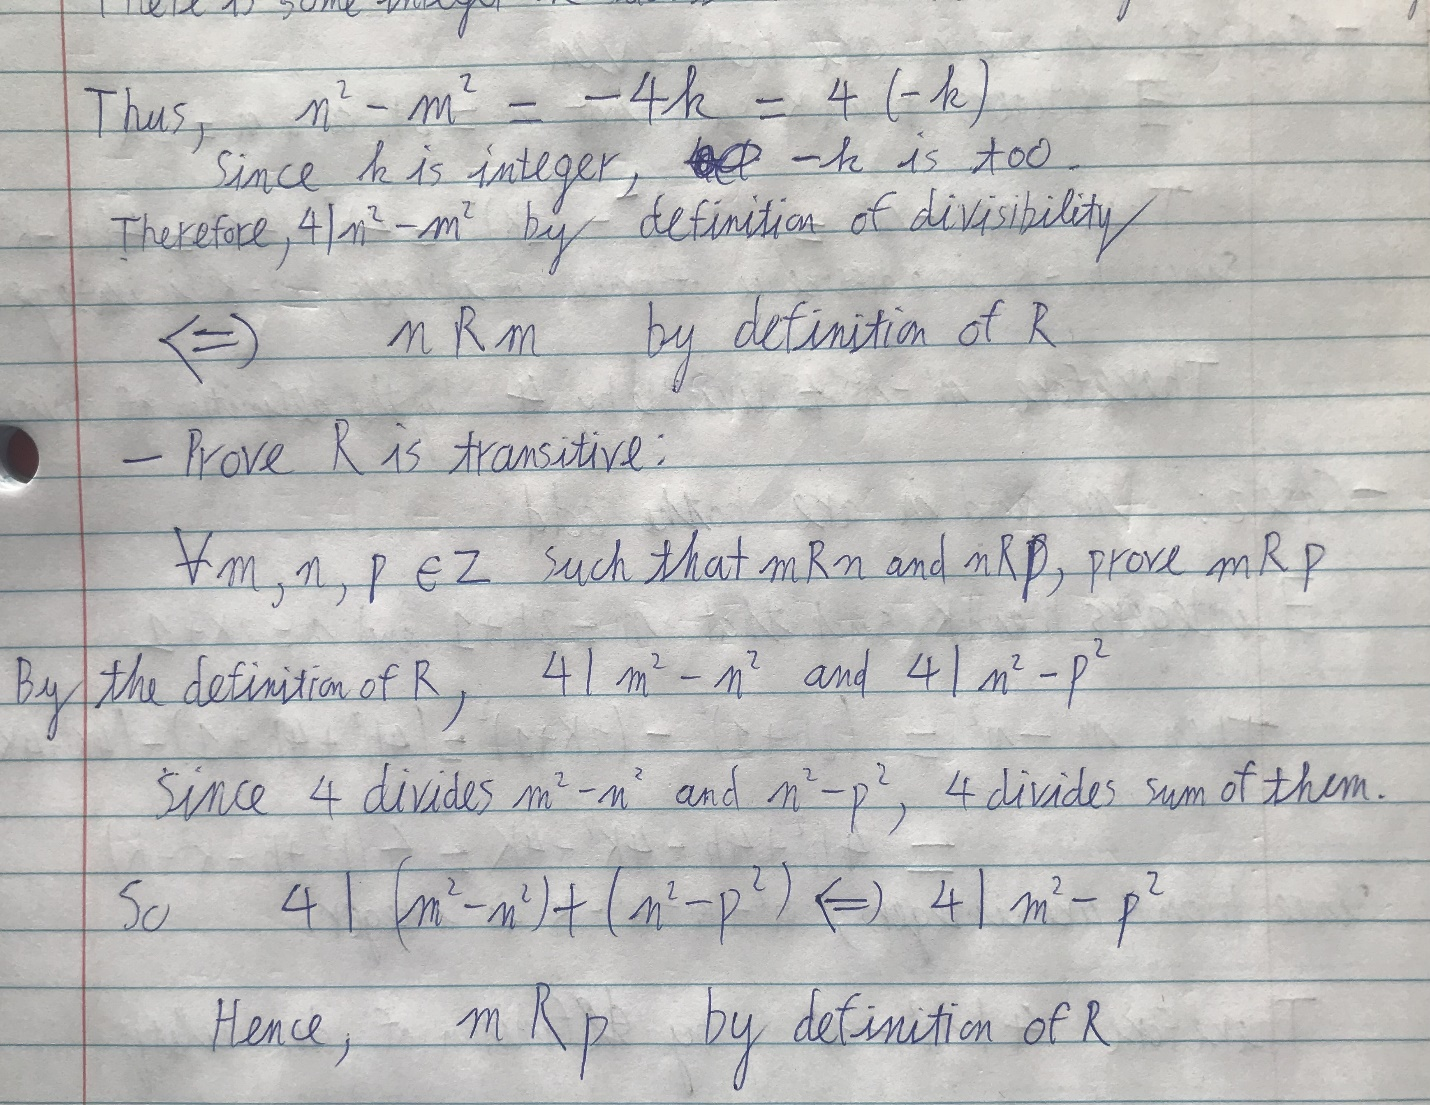 There is some integer
Thus, n² - m² = -4k = 4 (-k)
Since k is integer, -k is too.
Therefore, 4|n² - m² by definition of divisibility
<=> n R m by definition of R
- Prove R is transitive:
∀m, n, p ∈ Z such that mRn and nRp, prove mRp
By the definition of R, 4| m² - n² and 4| n² - p²
Since 4 divides m² - n² and n² - p², 4 divides sum of them.
So 4 | (m² - n²) + (n² - p²) <=> 4| m² - p²
Hence, m R p by definition of R